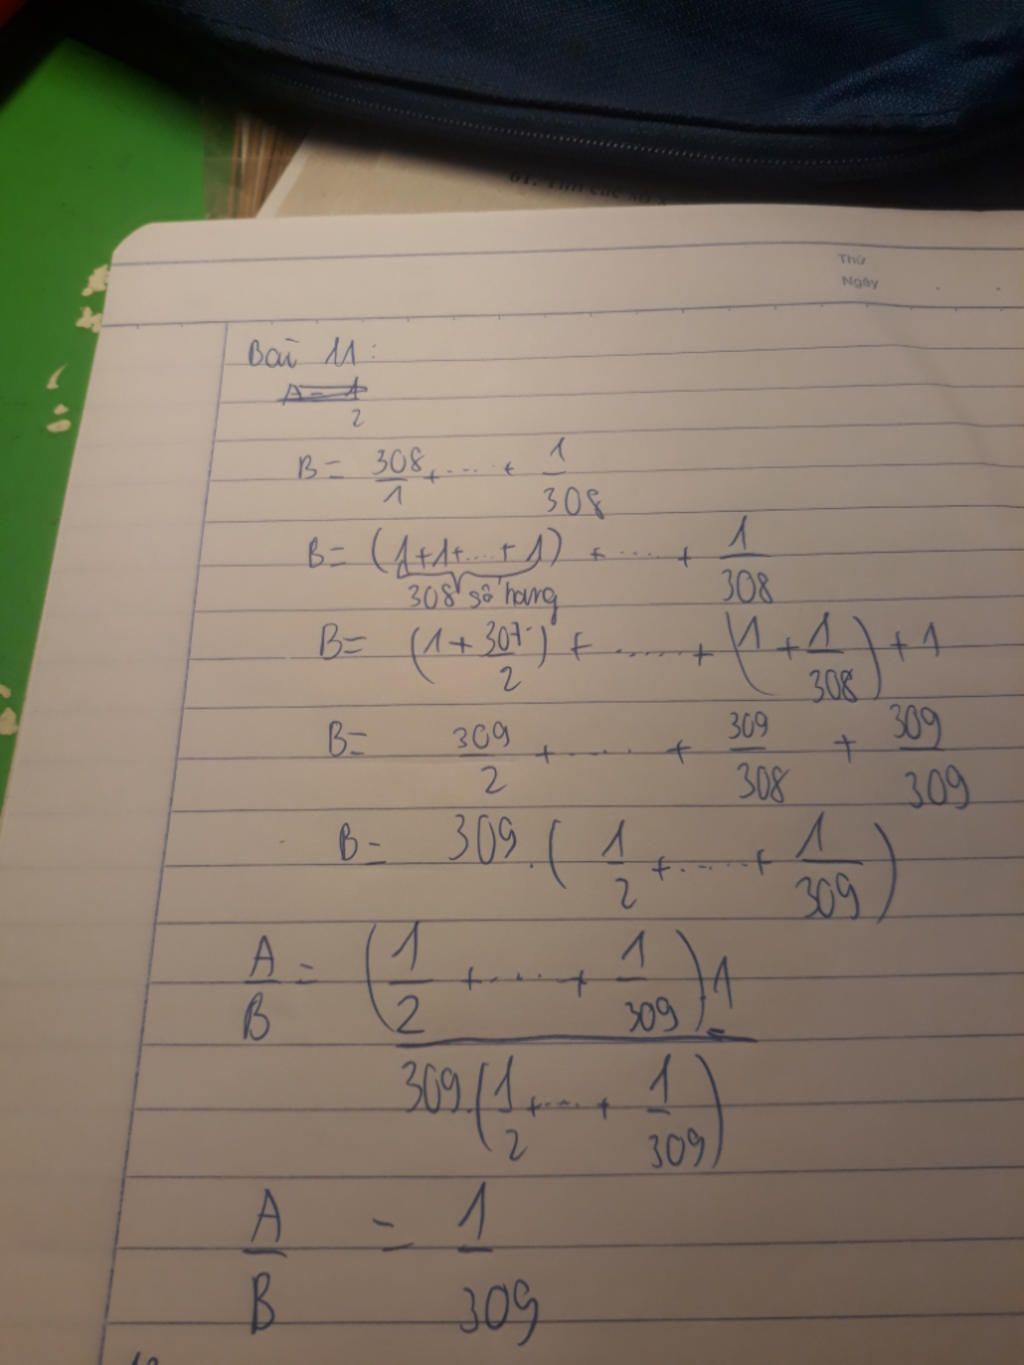 Thứ
Ngày
Bài 11:
A = 1/2
B = 308/1 + ..... + 1/308
B = (1+1+....+1) + ..... + 1/308
308 số hạng
B = (1 + 307/2) + ...... + (1 + 1/308) + 1
B = 309/2 + ..... + 309/308 + 309/309
B = 309.(1/2 + ..... + 1/309)
A/B = (1/2 + ..... + 1/309).1 / 309.(1/2 + ..... + 1/309)
A/B = 1/309